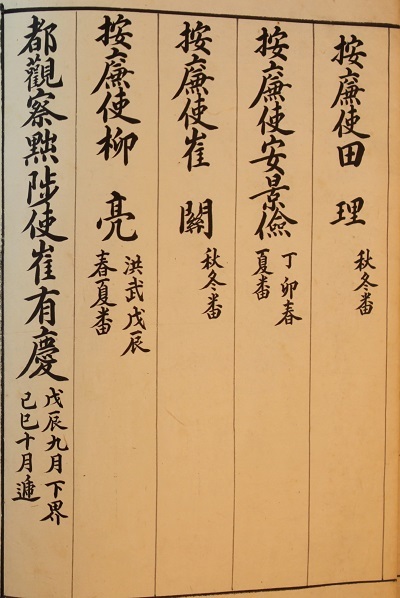 按廉使田理 秋冬番
按廉使安景儉 丁卯春
夏番
按廉使崔關 秋冬番
按廉使柳亮 洪武戊辰
春夏番
都觀察黜陟使崔有慶 戊辰九月下界
己巳十月遞